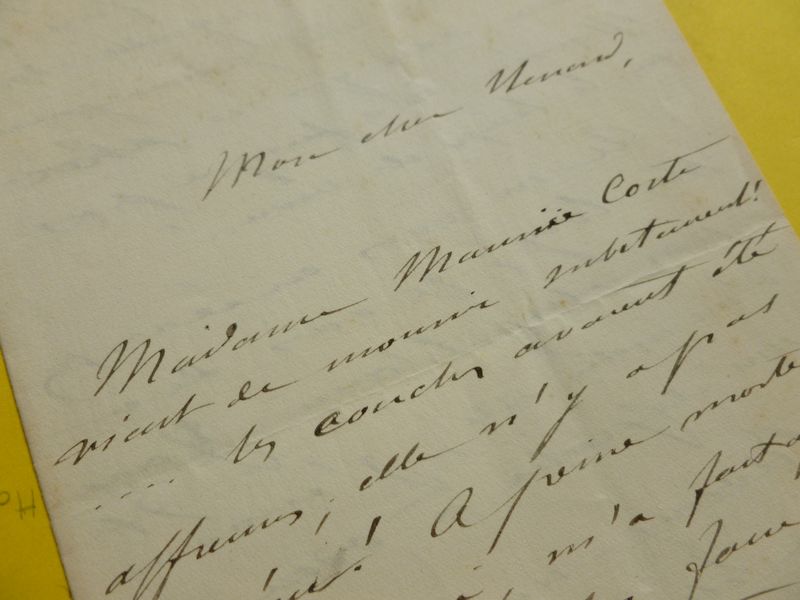 Mon cher Renard,
Madame Maurice Coste
vient de mourir subitement!
.... les couches avaient été
affreuses, elle n'y a pas
! A peine morte
m'a fait
faire